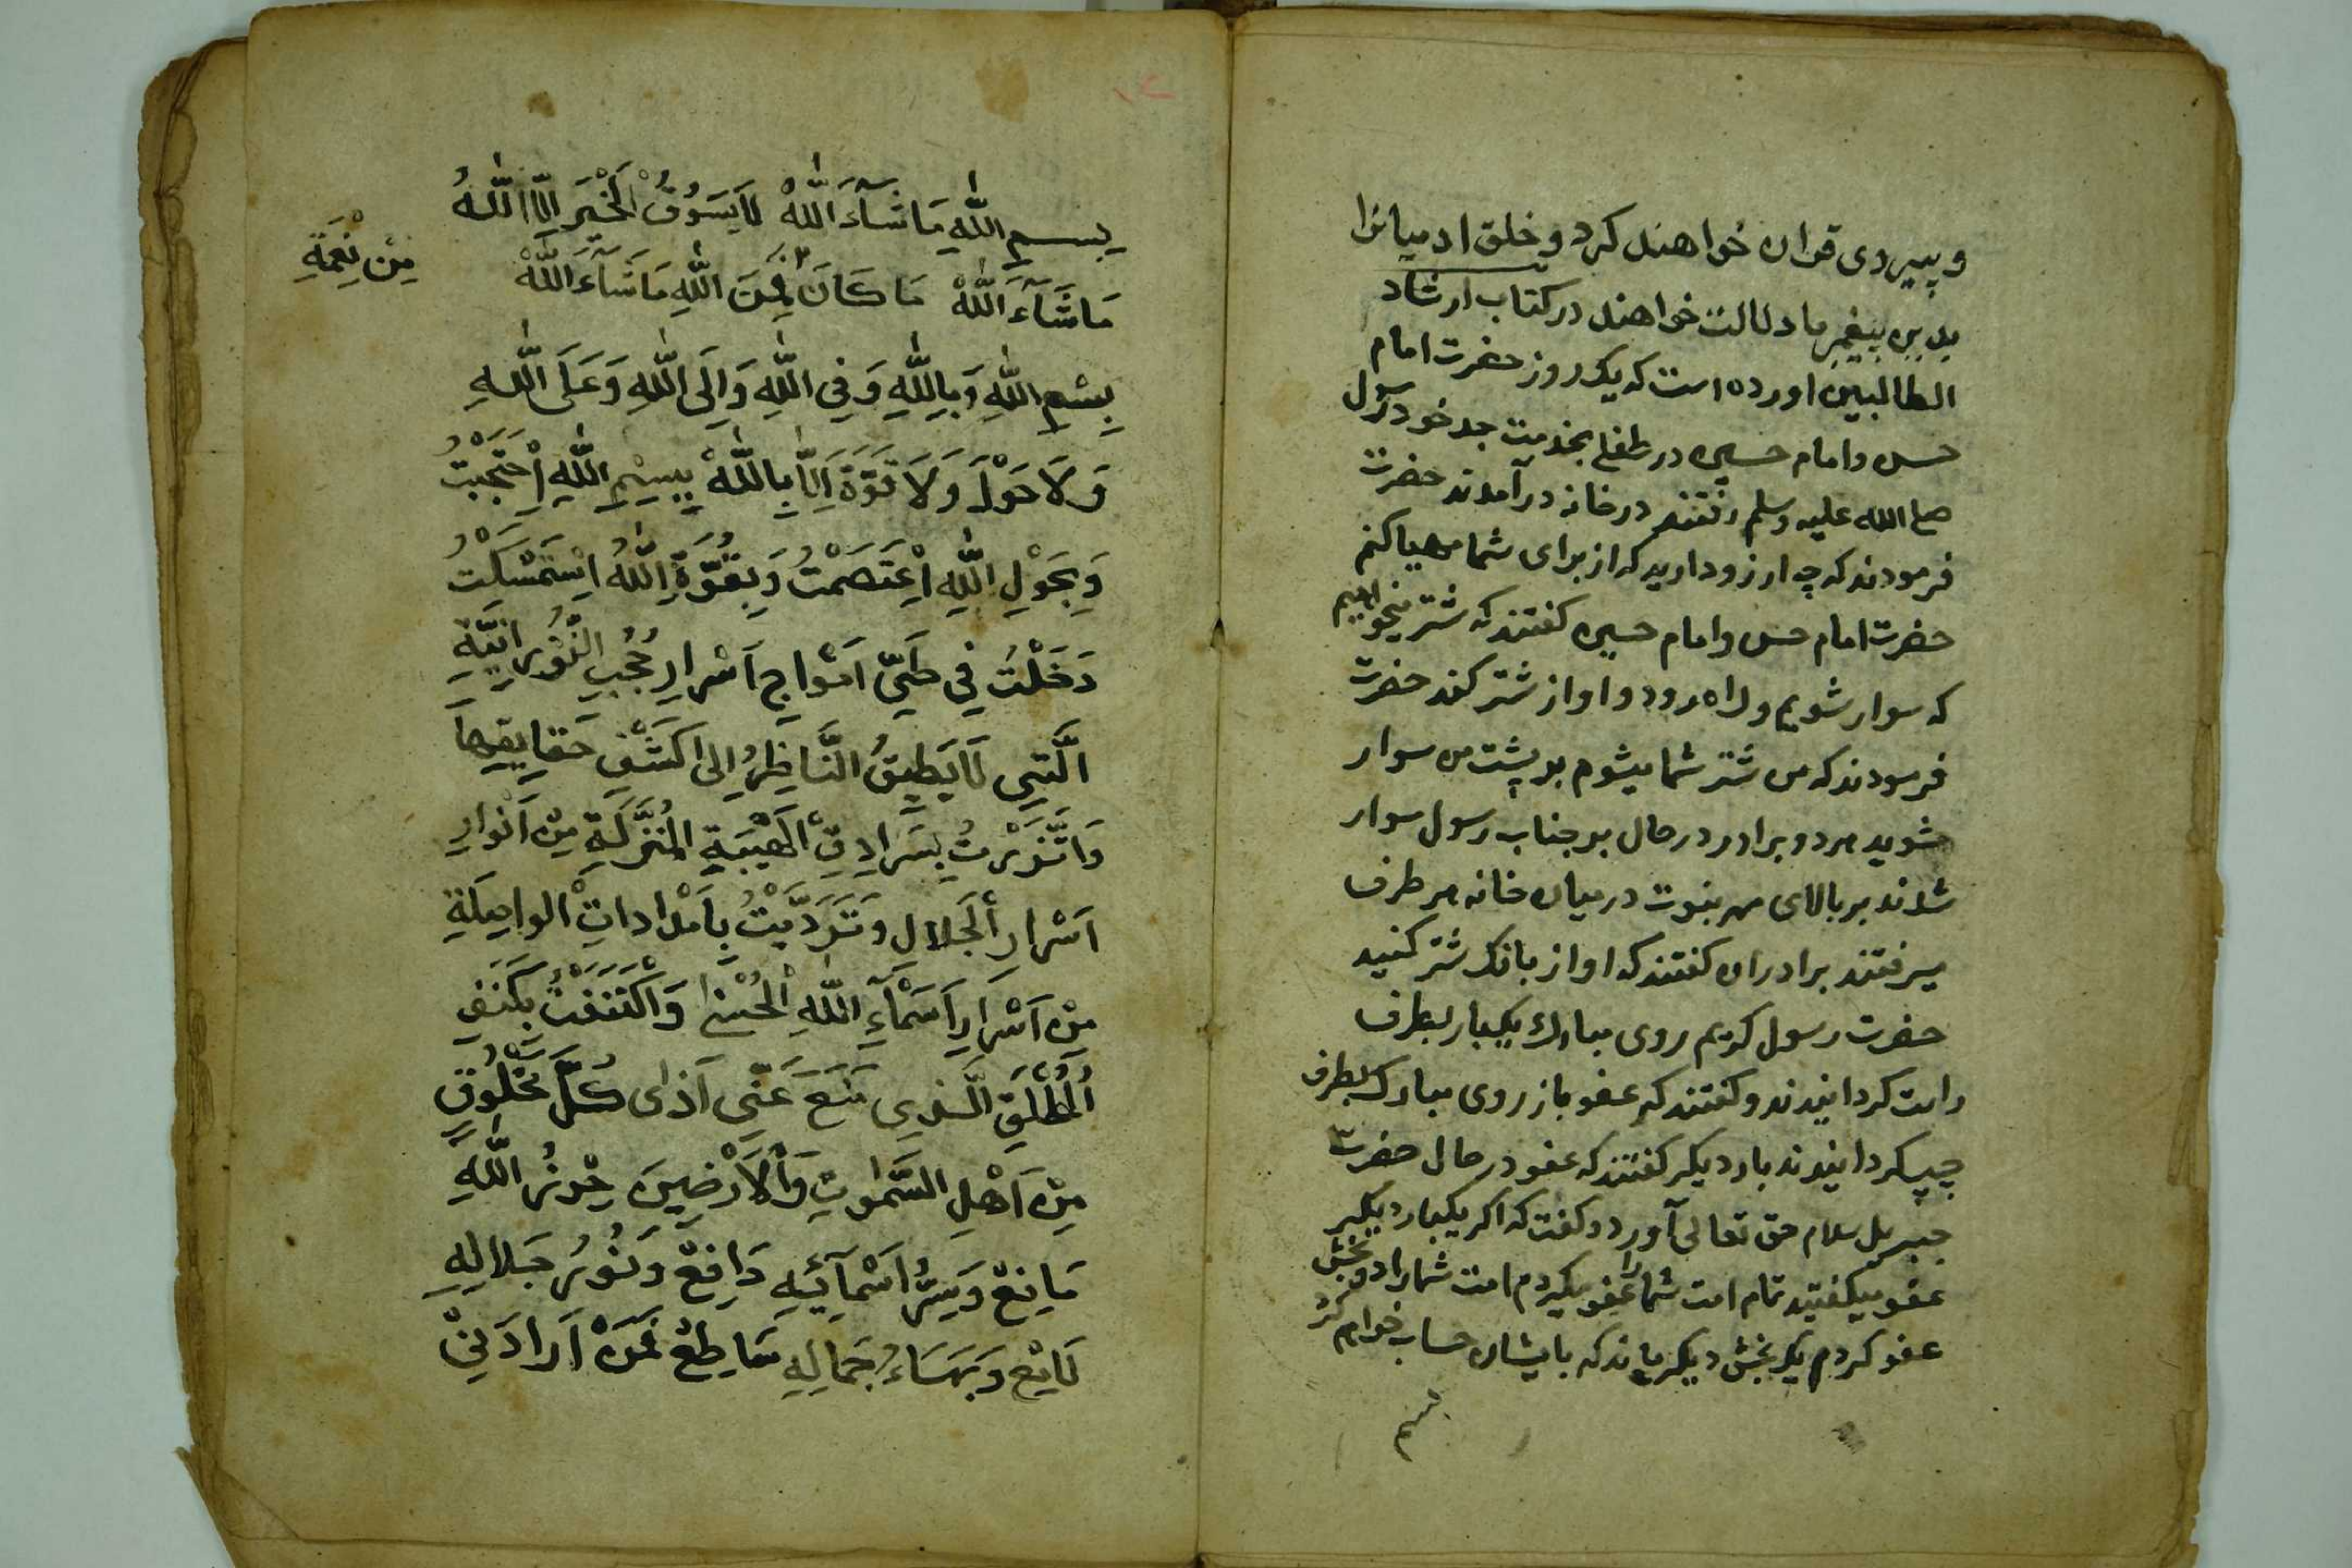 و پیروی قران خواهند کرد و خلق ادمیانرا
بدین پیغمبر ما دلالت خواهند در کتاب ارشاد
الطالبین اورده است که یک روز حضرت امام
حسن و امام حسین در طفلی بخدمت جد خود رسول
صلی الله علیه وسلم رفتند در خانه درآمدند حضرت
فرمودند که چه ارزو دارید که از برای شما مهیا کنم
حضرت امام حسن و امام حسین کفتند که شتر میخواهیم
که سوار شویم و راه رود و اواز شتر کند حضرت
فرمودند که من شتر شما میشوم بر پشت من سوار
شوید هر دو برادر در حال بر جناب رسول سوار
شدند بر بالای مهر نبوت در میان خانه هر طرف
میرفتند برادران کفتند که اواز بانک شتر کنید
حضرت رسول کریم روی مبارک یکبار بطرف
راست کردانیدند و کفتند که عفو باز روی مبارک بطرف
چپ کردانیدند بار دیکر کفتند که عفو در حال حضرت
جبریل سلام حق تعالی آورد و کفت که اکر یکبار دیکر
عفو میکفتید تمام امت شما را عفو میکردم امت شما را دو بخش
عفو کردم یک بخش دیکر ماند که بایشان حساب خواهم کرد
بسم
بسم الله ما شآء الله لا يسوق الخير الا الله
ما شآء الله ما كان فمن الله ما شآء الله
من نعمة
بسم الله وبالله وفي الله والى الله وعلى الله
ولا حول ولا قوة الا بالله بسم الله احتجبت
وبحول الله اعتصمت وبقوة الله استمسكت
دخلت في طي امواج اسرار حجب النورانية
التي لا يطيق الناظر الى كشف حقايقها
واتزرت بسرادق الهيبة المنزلة من انوار
اسرار الجلال وترديت بامدادات الواصلة
من اسرار اسمآء الله الحسنى واكتنفت بكنف
المطلق الذي منع عني اذى كل مخلوق
من اهل السموات والارضين حرز الله
مانع وسر اسمآئه دافع ونور جلاله
لامع وبهاء جماله ساطع فمن ارادني